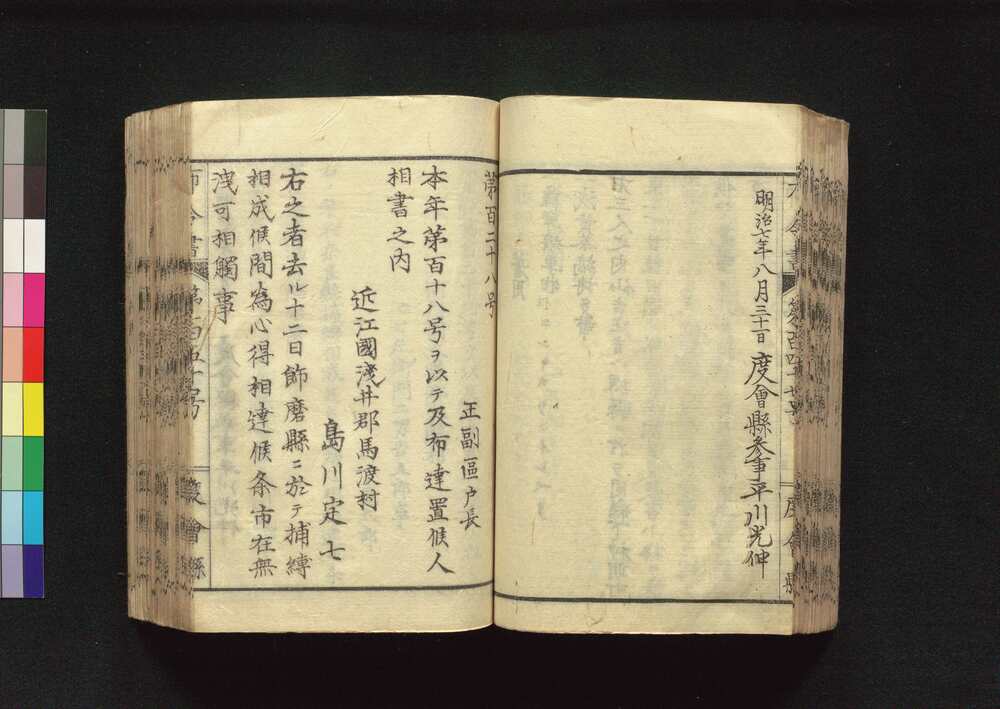 明治七年八月三十一日 度會縣参事平川光伸
度會縣
第百二十八号
正副區戸長
本年第百十八号ヲ以テ及布達置候人
相書之内
近江國淺井郡馬渡村
島川定七
右之者去ル十二日飾磨縣ニ於テ捕縛
相成候間為心得相達候条市在無
洩可相觸事
布令書
度會縣